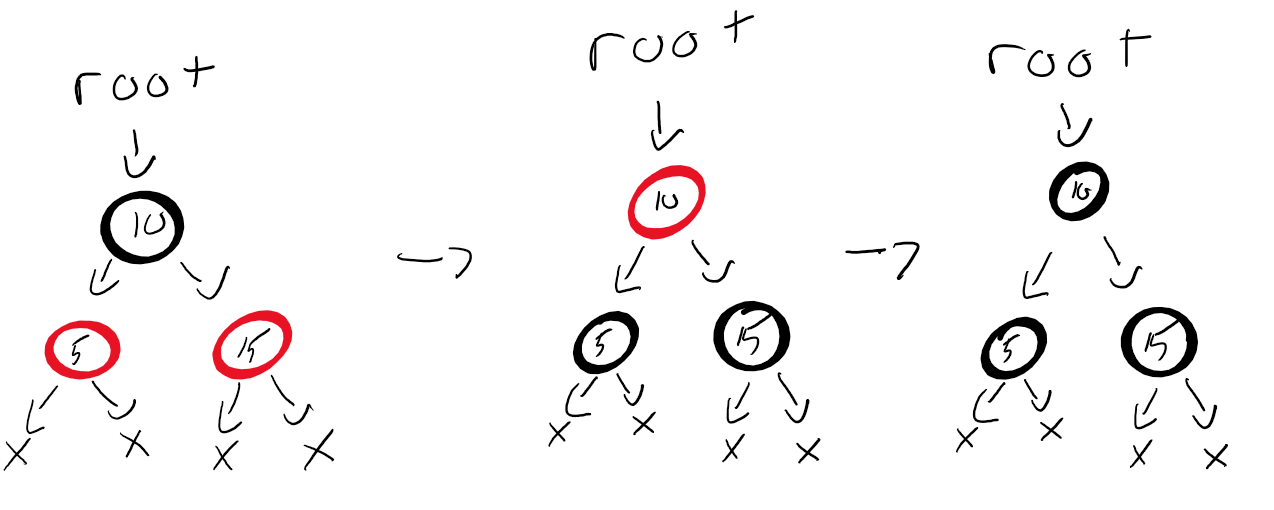 root
10
5 15
x x x x
root
10
5 15
x x x x
root
10
5 15
x x x x